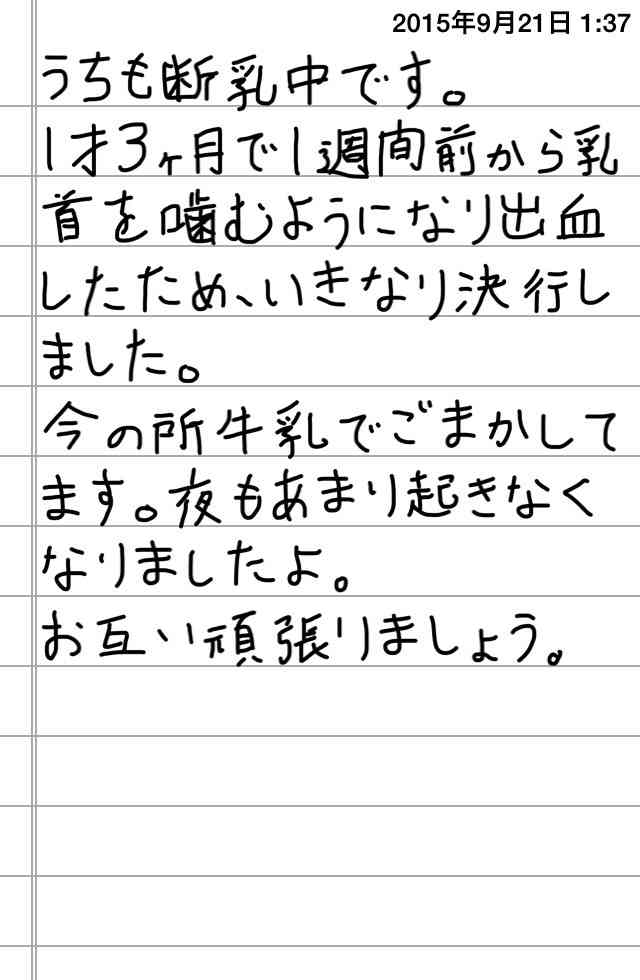 2015年9月21日 1:37
うちも断乳中です。
1才3ヶ月で1週間前から乳
首を噛むようになり出血
したため、いきなり決行し
ました。
今の所牛乳でごまかして
ます。夜もあまり起きなく
なりましたよ。
お互い頑張りましょう。